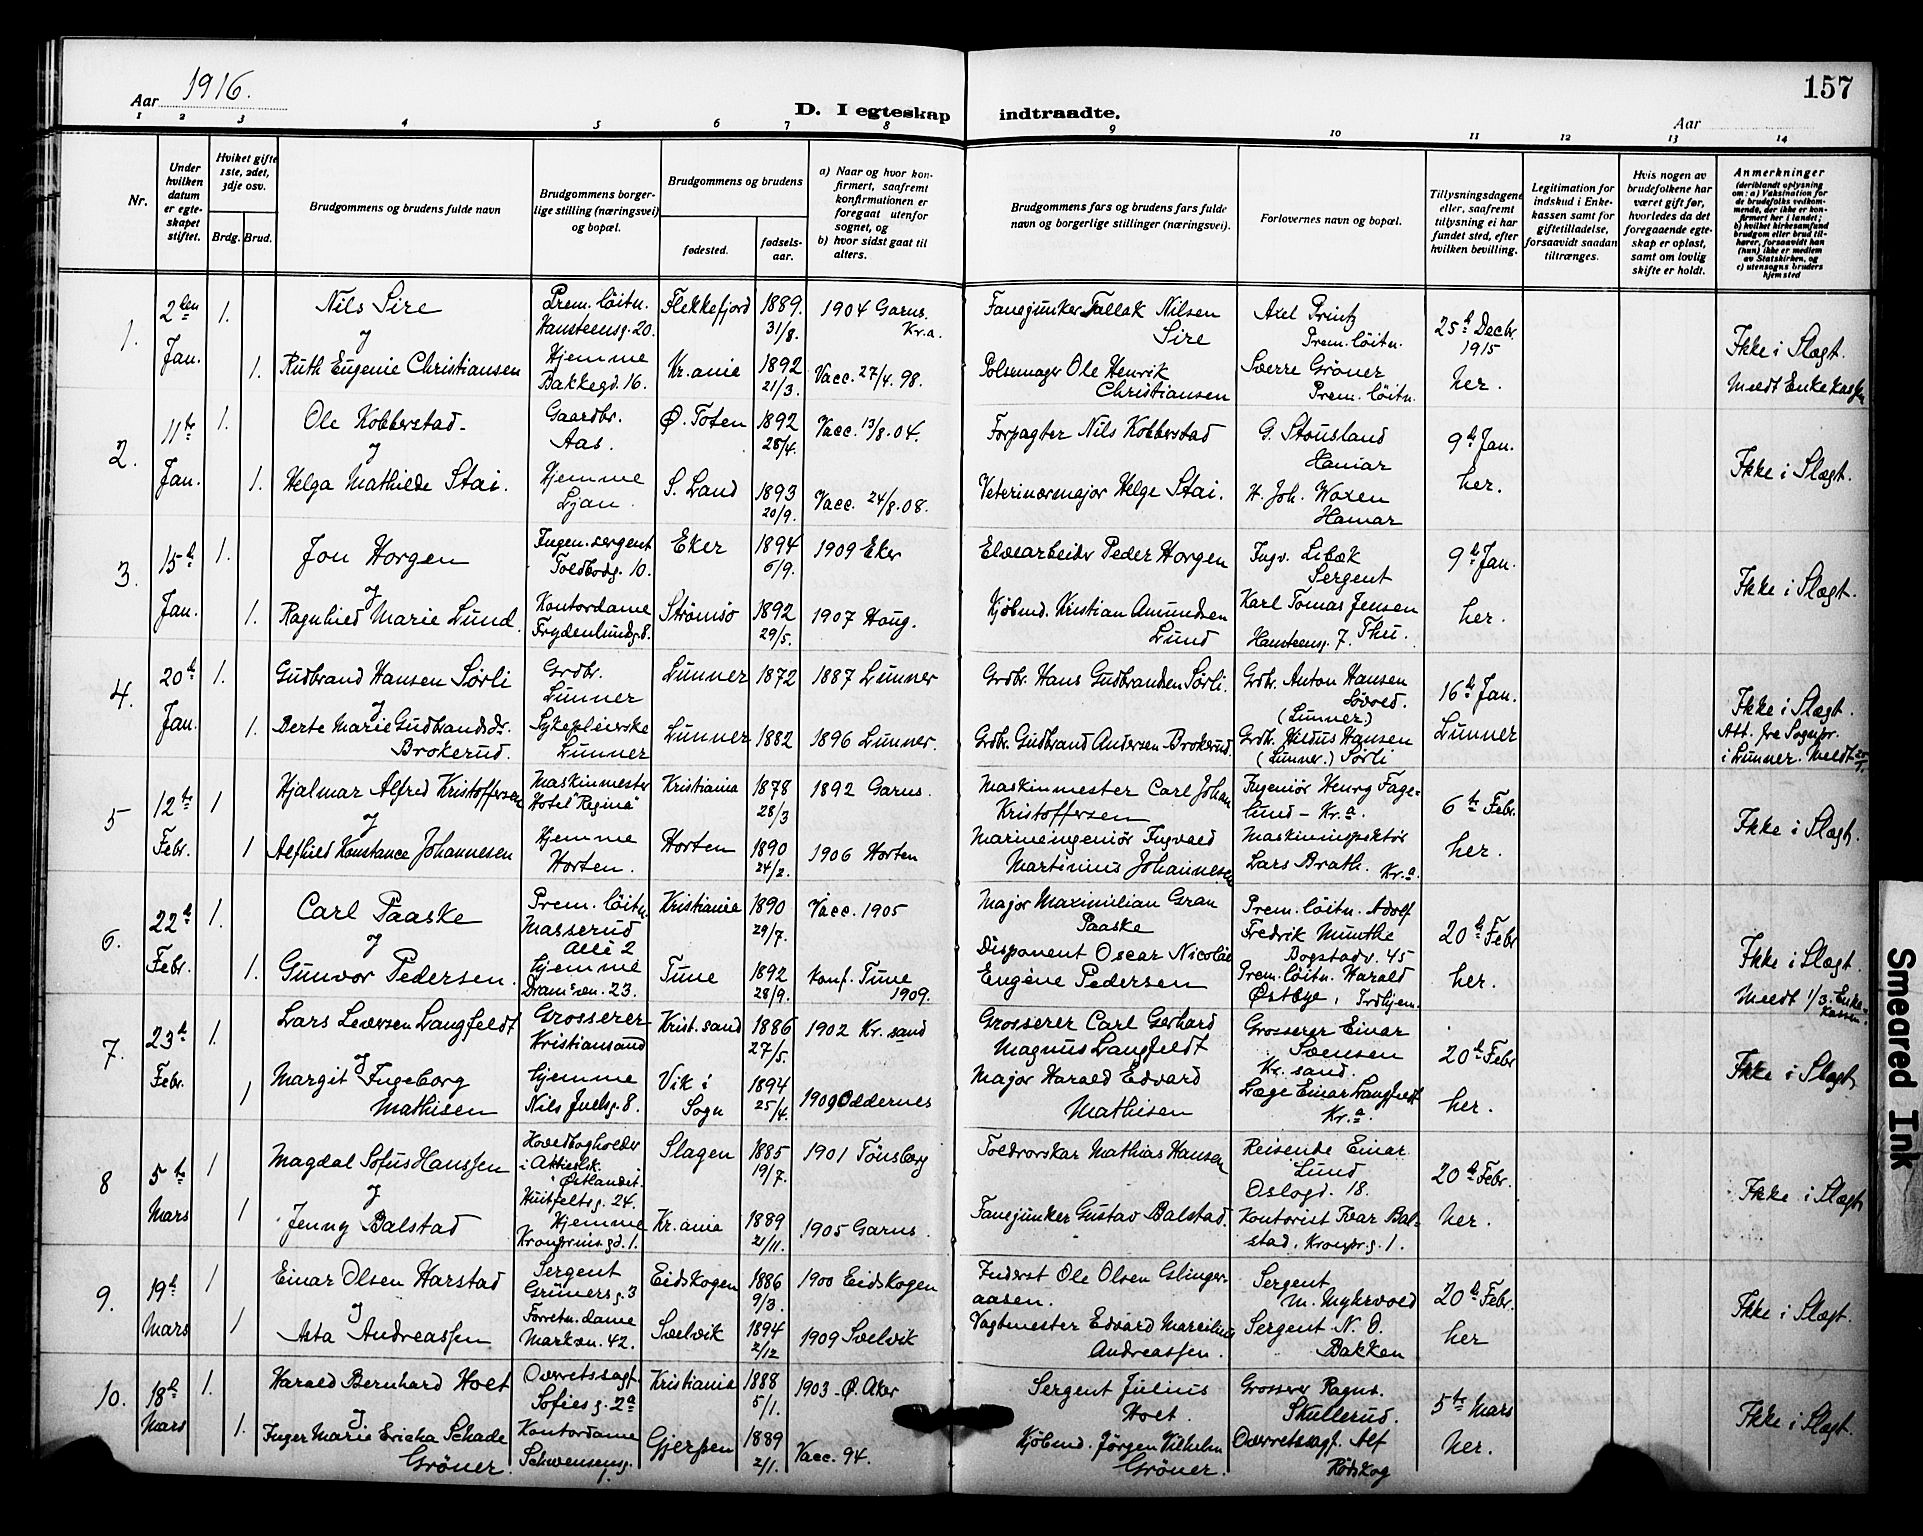 Aar 1916.
D. I egteskap indtraadte.
157
Aar
1 2 3 4 5 6 7 8 9 10 11 12 13 14
Nr.
Under hvilken datum er egteskapet stiftet.
Hvilket gifte 1ste, 2det, 3dje osv.
Brdg. Brud.
Brudgommens og brudens fulde navn
Brudgommens borgerlige stilling (næringsvei) og bopæl.
Brudgommens og brudens
fødested. fødselsaar.
a) Naar og hvor konfirmert, saafremt konfirmationen er foregaat utenfor sognet, og
b) hvor sidst gaat til alters.
Brudgommens fars og brudens fars fulde navn og borgerlige stillinger (næringsvei).
Forlovernes navn og bopæl.
Tillysningsdagene eller, saafremt tillysning ei har fundet sted, efter hvilken bevilling.
Legitimation for indskud i Enkekassen samt for giftetilladelse, forsaavidt saadan tiltrænges.
Hvis nogen av brudefolkene har været gift før, hvorledes da det foregaaende egteskap er opløst, samt om lovlig skifte er holdt.
Anmerkninger
(deriblandt oplysning om: a) Vaksination for de brudefolks vedkommende, der ikke er konfirmert her i landet; b) hvilket kirkesamfund brudgom eller brud tilhører, forsaavidt han (hun) ikke er medlem av Statskirken, og c) utensogns bruders hjemsted
1. 2den Jan. 1. Nils Sire Prem. löitn. Hansteensg. 20. Flekkefjord 1889. 31/8. 1904 Garns. Kr.a. Fanejunker Tallak Nilsen Sire Axel Printz Prem. löitn. 25d Decbr. 1915 Ikke i Slægt.
og
1. Ruth Eugenie Christiansen Hjemme Bakkegd. 16. Kr.ania 1892 21/3. Vacc. 27/4. 98. Pølsemager Ole Henrik Christiansen Sverre Gröner Prem. löitn. her. Meldt Enkekassen
2. 11te Jan. 1. Ole Kobberstad Gaardbr. Aas. Ø. Toten 1892 28/4. Vacc. 13/8. 04. Forpagter Nils Kobberstad G. Stousland Hamar 9d Jan. Ikke i Slægt.
og
1. Helga Mathilde Stai. Hjemme Ljan. S. Land 1893 20/9. Vacc. 24/8. 08. Veterinærmajor Helge Stai. H. Joh. Woxen Hamar her.
3. 15d Jan. 1. Jon Horgen Ingen. sergent Toldbodg. 10. Eker 1894 6/9. 1909 Eker Elvearbeider Peder Horgen Ingv. Libæk Sergent 9d Jan. Ikke i Slægt.
og
1. Ragnhild Marie Lund. Kontordame Frydenlundsg. 8. Strömsö 1892 29/5. 1907 Houg. Kjöbmd. Kristian Amundsen Lund Karl Tomas Jensen Thu. Hansteensg. 7. her.
4. 20d Jan. 1. Gudbrand Hansen Sörli Grdbr. Lunner Lunner 1872 1887 Lunner Grdbr. Hans Gudbrandsen Sörli. Grdbr. Anton Hansen (Lunner) 16d Jan. Ikke i Slægt.
og
1. Berte Marie Gudbrandsdr. Brokerud. Sykepleierske Lunner Lunner 1882 1896 Lunner. Grdbr. Gudbrand Andersen Brokerud. Grdbr. Hildus Hansen (Lunner.) Sörli Lunner Att. fra Sognpr. i Lunner. Meldt
5 12te Febr. 1 Hjalmar Alfred Kristoffersen Maskinmester Hotel "Regina" Kristiania 1878 28/3 1892 Garns. Maskinmester Carl Johan Kristoffersen Ingeniör Henry Fagelund - Kr.a. 6te Febr. Ikke i Slægt.
og
1 Alfhild Konstance Johannesen Hjemme Horten. Horten 1890 24/2. 1906 Horten Marineingeniör Ingvald Martinius Johannesen Maskininspektör Lars Brath. Kr.a. her.
6. 22d Febr. 1. Carl Paaske Prem. löitn. Masserud Allé 2 Kristiania 1890 29/7. Vacc. 1905 Major Maximilian Gran Paaske Prem. löitn. Adolf Fredrik Munthe Bogstadv. 45 20d Febr Ikke i Slægt.
og
1. Gunvor Pedersen. Hjemme Dramsvn. 23. Tune 1892 28/9. Konf. Tune 1909. Disponent Oscar Nicolai Eugène Pedersen Prem. löitn. Harald Østbye, Trdhjem. her. Meldt 1/3. Enkekassen.
7. 23d Febr. 1. Lars Leversen Langfeldt Grosserer Kristiansand Krist.sand 1886 27/5. 1902 Kr.sand Grosserer Carl Gerhard Magnus Langfeldt Grosserer Einar Svensen Kr.sand. 20d Febr Ikke i Slægt
og
1 Margit Ingeborg Mathisen Hjemme Nils Juelsg. 8. Vik i Sogn 1894 25/4. 1909 Oddernes Major Harald Edvard Mathisen Læge Einar Langfeldt Kr.a. her.
8 5te Mars 1 Magdal Sofus Hanssen Hovedbogholder i Aktieslsk. Östlandet. Huitfeltsg. 24. Slagen 1885 19/7. 1901 Tönsberg Toldrorskar Mathias Hansen Reisende Einar Lund Oslogd. 18. 20d Febr. Ikke i Slægt
og
1 Jenny Balstad Hjemme Kronprinsgd. 1. Kr.ania 1889 21/11. 1905 Garns. Fanejunker Gustav Balstad. Kontorist Ivar Balstad, Kronpr.g. 1. her.
9. 19d Mars 1 Einar Olsen Harstad Sergent Grünersg. 3 Eidskogen 1886 9/3. 1900 Eidskogen Inderst Ole Olsen Eslingeraasen. Sergent M. Myhrvold 20d Febr. Ikke i Slægt.
og
1 Asta Andreassen Forretn. dame Markvn. 42. Svelvik 1894 2/12 1909 Svelvik Vagtmester Edvard Marcilius Andreassen. Sergent N. O. Bakken her
10. 18d Mars 1. Harald Bernhard Hoel Overretssagf. Sofiesg. 2a Kristiania 1888 5/1. 1903 - Ø. Aker Sergent Julius Hoel. Grosserer Ragn. Skullerud. 5te Mars Ikke i Slægt.
og
1. Inger Marie Ericha Schade Gröner. Kontordame Schwensensg. 1. Gjerpen 1889 2/1. Vacc. 94. Kjöbmd. Jörgen Vilhelm Gröner. Overretssagf. Alf Rödskog her.
Smeared Ink